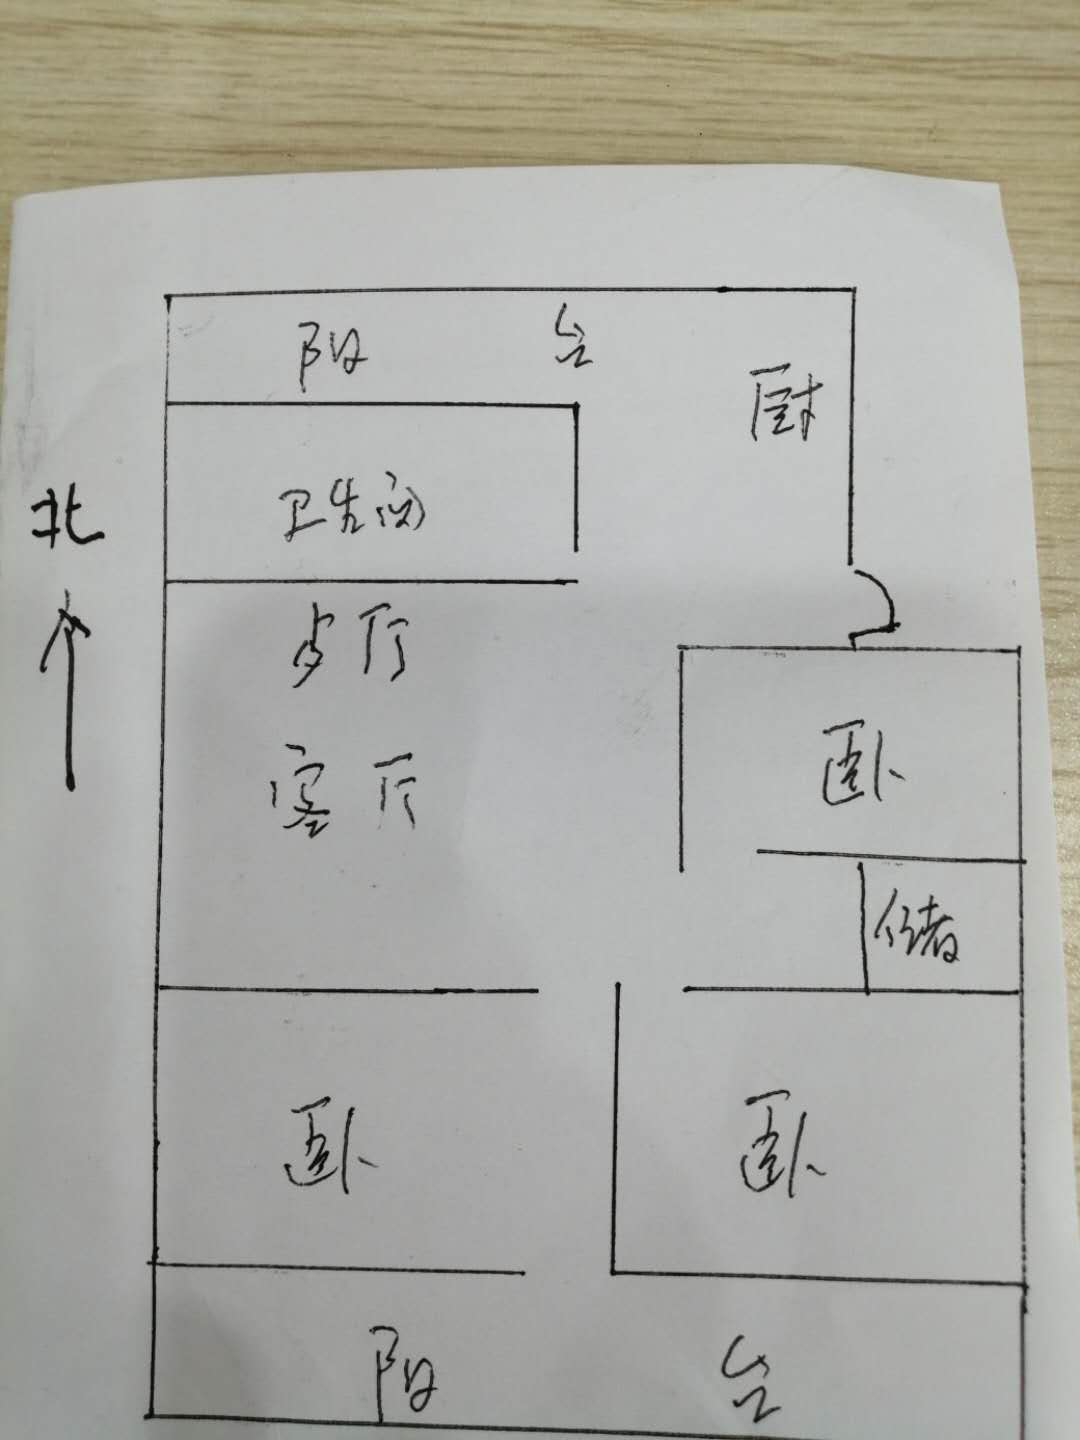 阳台
厨
卫生间
北
歺厅
客厅
卧
储
卧
卧
阳台